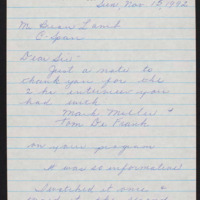 Sun, Nov. 15, 1992
Mr Brian Lamb
C. Span
Dear Sir-
Just a note to
thank you for the
2 hr interview you
had with
Mark Mathis &
Tom De Frank
on your program
It was so informative!
I watched it once &